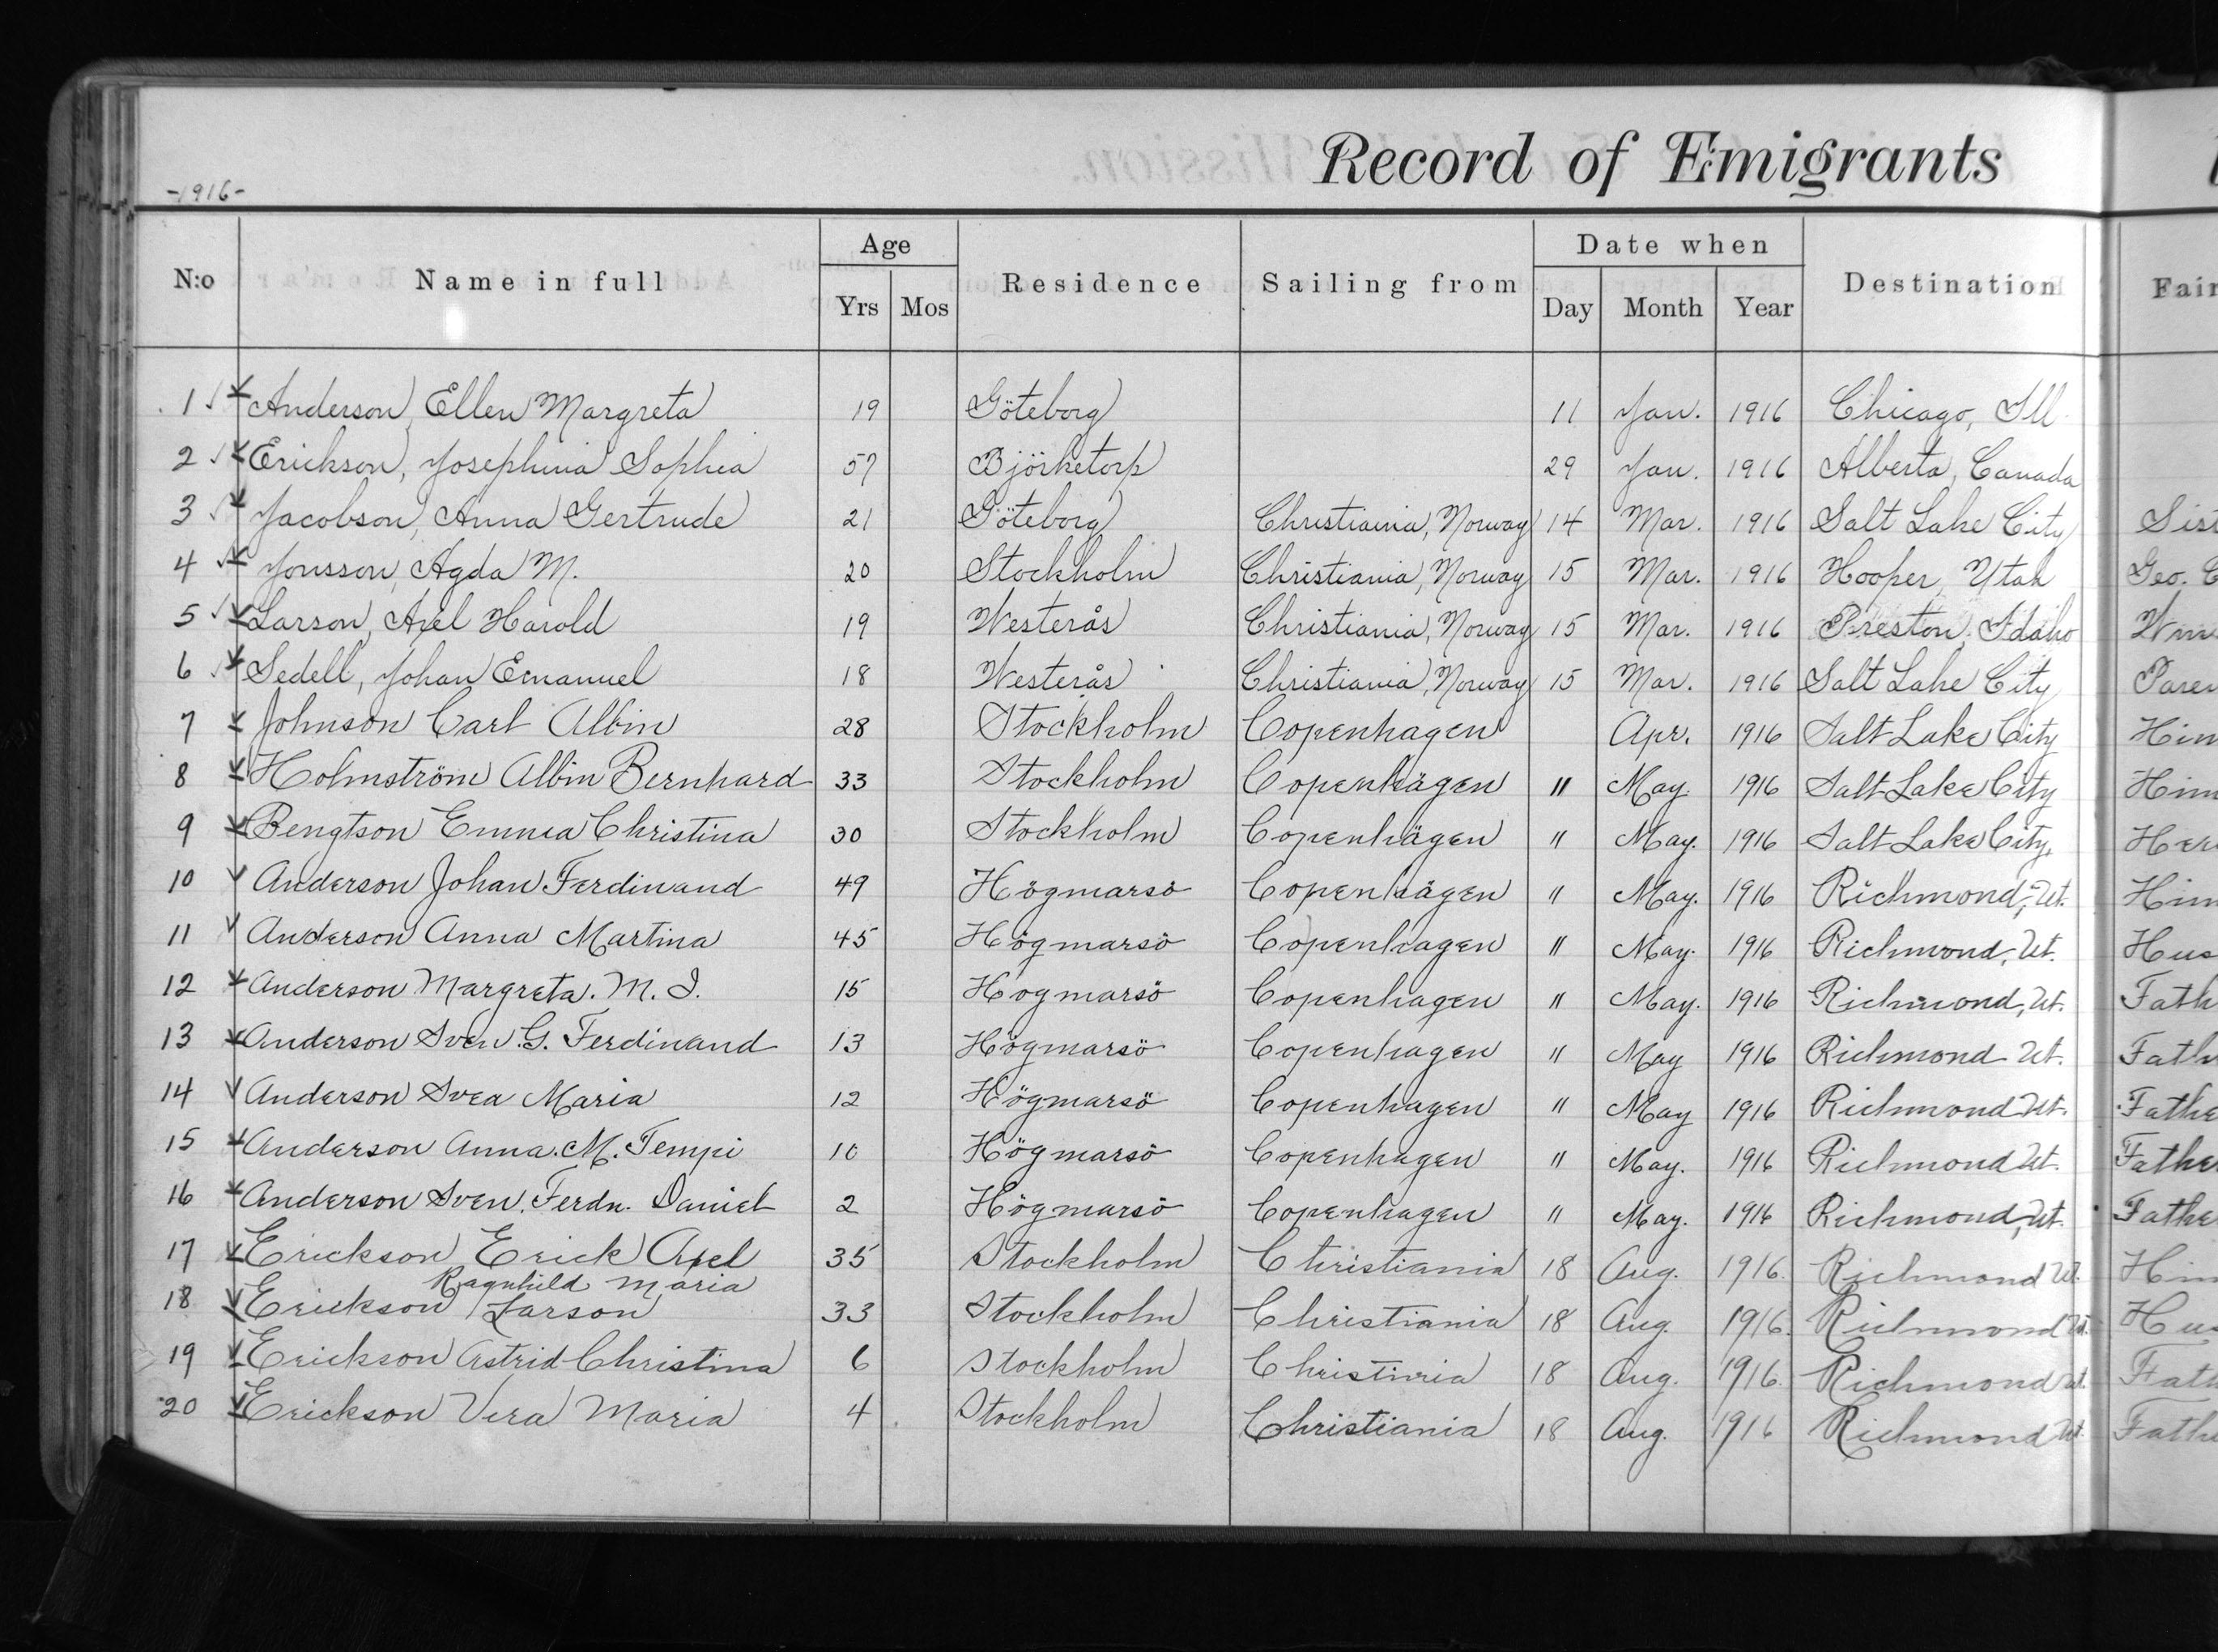 Record of Emigrants
-1916-
N:o Name in full Age Yrs Mos Residence Sailing from Date when Day Month Year Destination Fair
1 Anderson, Ellen Margreta 19 Göteborg 11 Jan. 1916 Chicago, Ill.
2 Erickson, Josephina Sophia 57 Björketorp 29 Jan. 1916 Alberta, Canada
3 Jacobson, Anna Gertrude 21 Göteborg Christiania, Norway 14 Mar. 1916 Salt Lake City Sist
4 Jonsson, Agda M. 20 Stockholm Christiania, Norway 15 Mar. 1916 Hooper, Utah Geo.
5 Larson, Axel Harold 19 Westerås Christiania, Norway 15 Mar. 1916 Preston, Idaho
6 Sedell, Johan Emanuel 18 Westerås Christiania, Norway 15 Mar. 1916 Salt Lake City Paren
7 Johnson Carl Albin 28 Stockholm Copenhagen Apr. 1916 Salt Lake City Him
8 Holmström Albin Bernhard 33 Stockholm Copenhagen 11 May. 1916 Salt Lake City Him
9 Bengtson Emma Christina 30 Stockholm Copenhagen 11 May. 1916 Salt Lake City. Her
10 Anderson Johan Ferdinand 49 Högmarsö Copenhagen 11 May. 1916 Richmond, Ut. Him
11 Anderson Anna Martina 45 Högmarsö Copenhagen 11 May. 1916 Richmond, Ut. Hus
12 Anderson Margreta. M. I. 15 Hogmarsö Copenhagen 11 May. 1916 Richmond, Ut. Fath
13 Anderson Sven. G. Ferdinand 13 Högmarsö Copenhagen 11 May 1916 Richmond Ut. Fath
14 Anderson Svea Maria 12 Högmarsö Copenhagen 11 May 1916 Richmond Ut. Fathe
15 Anderson Anna. M. Tempi 10 Högmarsö Copenhagen 11 May. 1916 Richmond Ut. Father
16 Anderson Sven. Ferdn. Daniel 2 Högmarsö Copenhagen 11 May. 1916 Richmond, Ut. Fathe
17 Erickson Erick Axel 35 Stockholm Christiania 18 Aug. 1916. Richmond Ut. Him
Ragnhild Maria
18 Erickson Larson 33 Stockholm Christiania 18 Aug. 1916. Richmond Ut. Hus
19 Erickson Astrid Christina 6 Stockholm Christinia 18 Aug. 1916. Richmond Ut. Fath
20 Erickson Vera Maria 4 Stockholm Christiania 18 Aug. 1916 Richmond Ut. Fathe